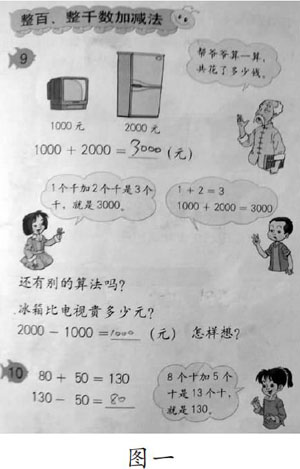 整百、整千数加减法
9
帮爷爷算一算,
共花了多少钱。
1000 元
2000 元
1000 + 2000 = 3000 (元)
1个千加2个千是3个
千,就是 3000。
1 + 2 = 3
1000 + 2000 = 3000
还有别的算法吗?
冰箱比电视贵多少元?
2000 - 1000 = 1000 (元) 怎样想?
10
80 + 50 = 130
130 - 50 = 80
8 个十加 5 个
十是 13 个十,
就是 130。
图一